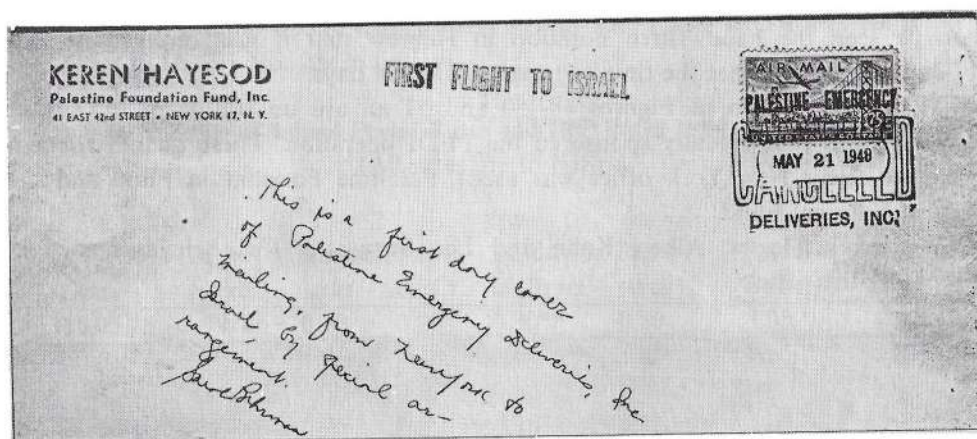 KEREN HAYESOD
Palestine Foundation Fund, Inc.
41 EAST 42nd STREET • NEW YORK 17, N. Y.
FIRST FLIGHT TO ISRAEL
AIR MAIL
PALESTINE EMERGENCY
MAY 21 1948
CANCELLED
DELIVERIES, INC.
This is a first day cover
of Palestine Emergency Deliveries, Inc
mailing, from New York to
Israel, by special ar-
rangement.